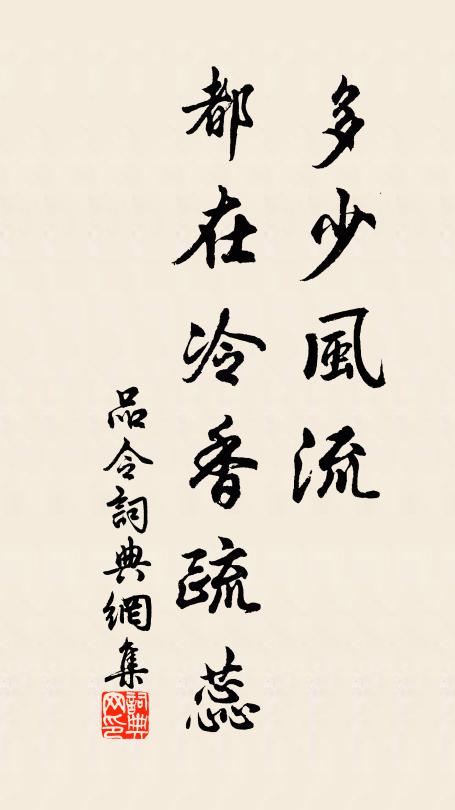 多少風流
都在冷香疏蕊
品令詞典網集
詞典
网印